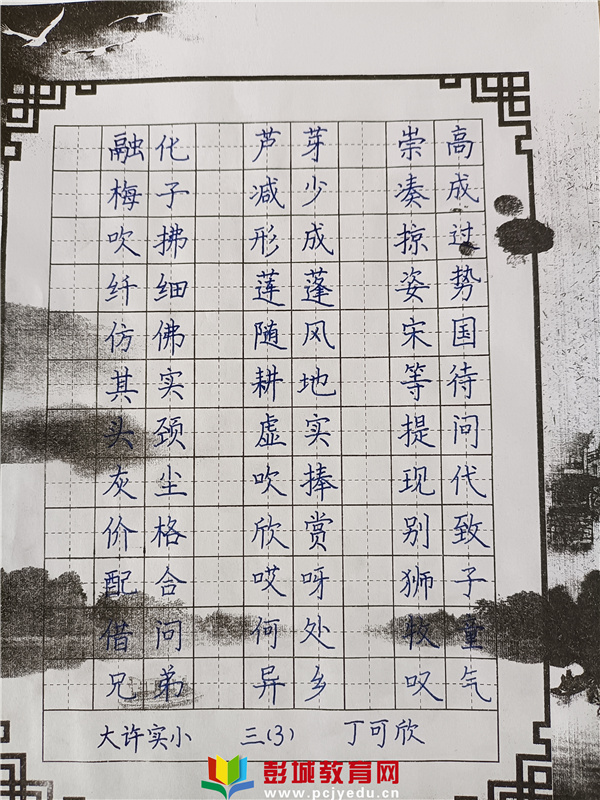 融化 芦芽 崇高
梅子 减少 凑成
吹拂 形成 掠过
纤细 莲蓬 姿势
仿佛 随风 宋国
其实 耕地 等待
头颈 虚实 提问
灰尘 吹捧 现代
价格 欣赏 别致
配合 哎呀 狮子
借问 何处 牧童
兄弟 异乡 叹气
大许实小 三(3) 丁可欣
彭城教育网
www.pcjyedu.cn